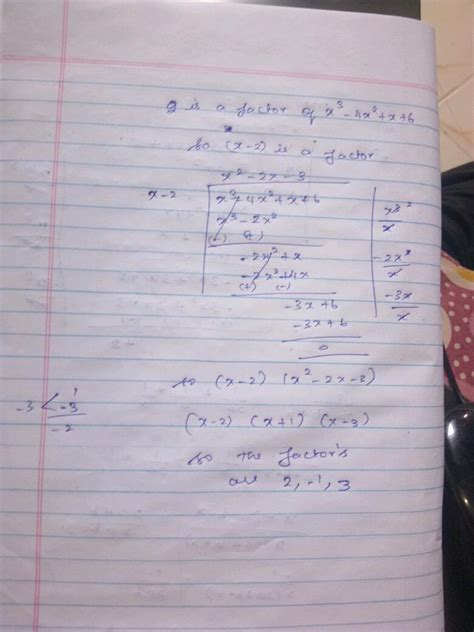 2 is a factor of x³-4x²+x+6
So (x-2) is a factor
x²-2x-3
x-2 x³-4x²+x+6
x³-2x²
(-) (+)
-2x²+x
-2x²+4x
(+) (-)
-3x+6
-3x+6
0
x³
x
-2x²
x
-3x
x
so (x-2) (x²-2x-3)
-3 < -3 1
-2
(x-2) (x+1) (x-3)
so the factor's
are 2, -1, 3